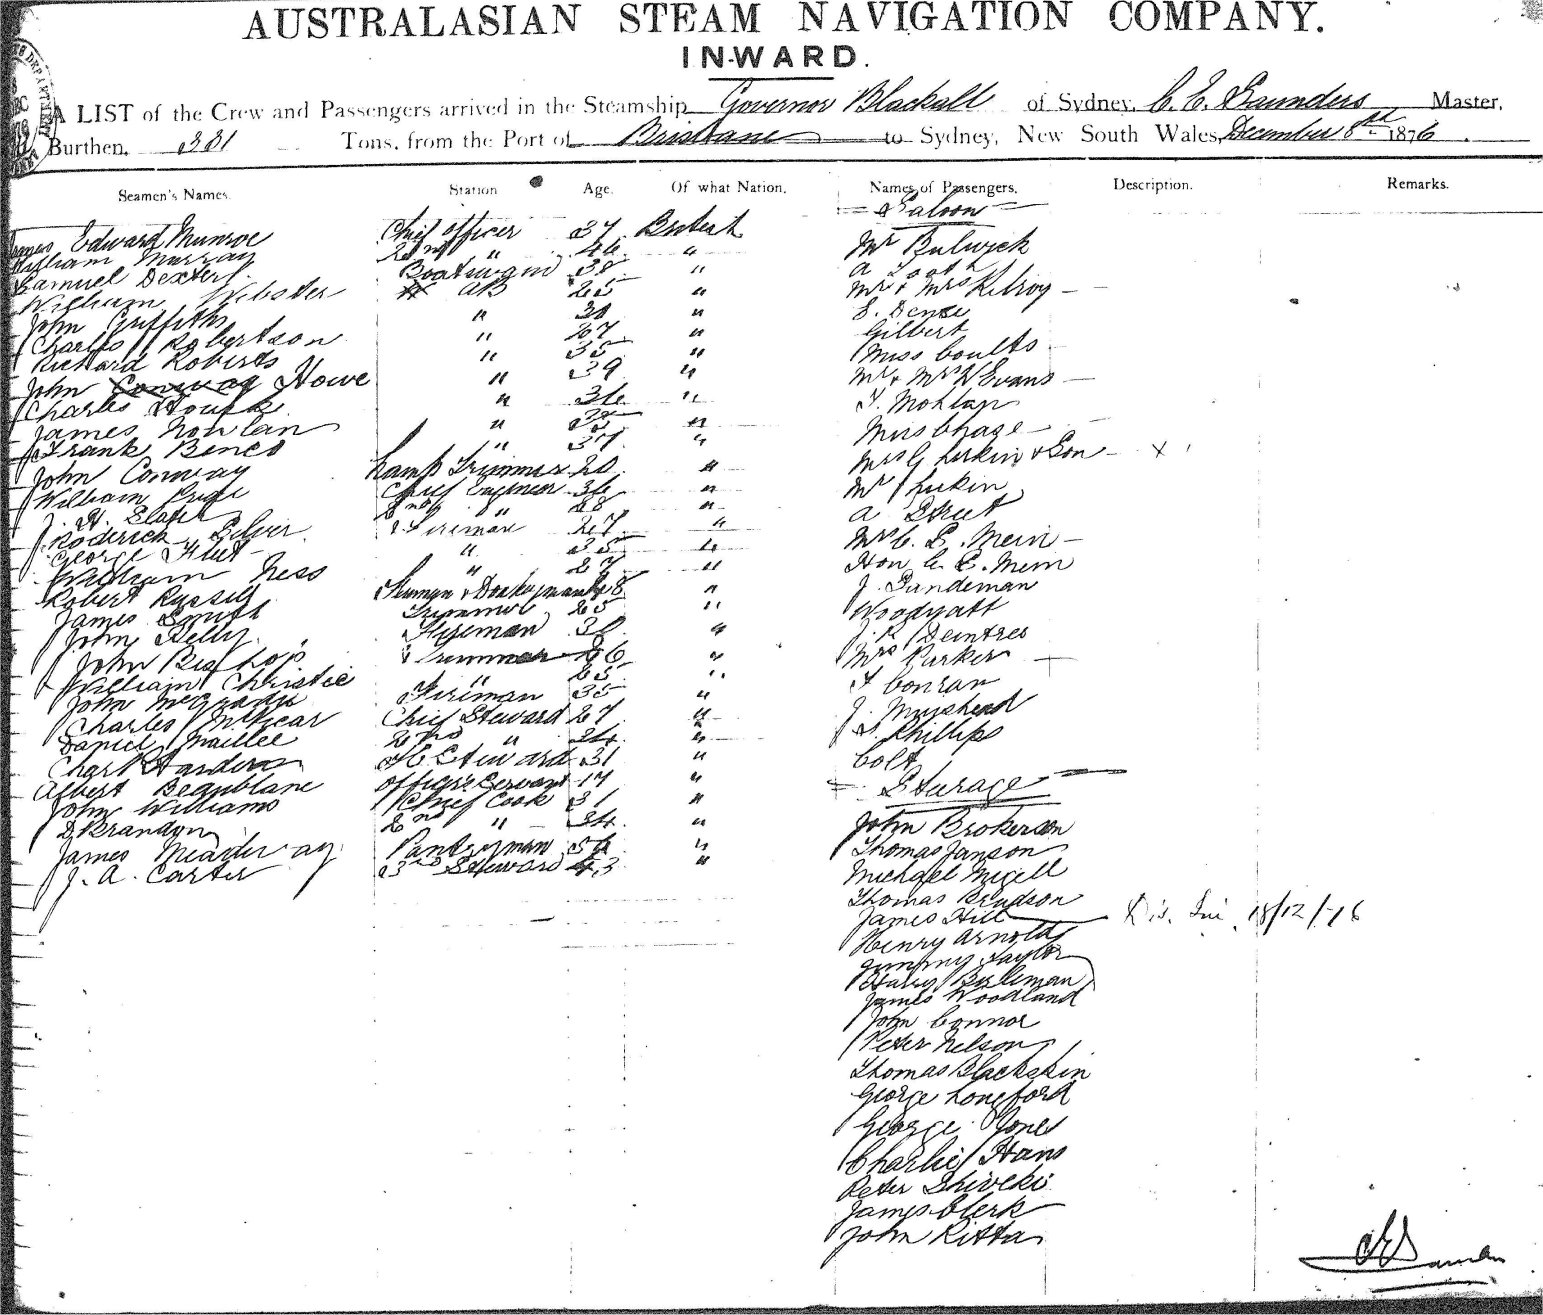 AUSTRALASIAN STEAM NAVIGATION COMPANY.
INWARD.
A LIST of the Crew and Passengers arrived in the Steamship Governor Blackall of Sydney, C. E. Saunders Master,
Burthen, 331 Tons, from the Port of Brisbane to Sydney, New South Wales, December 8th 1876.
Seamen's Names. Station Age. Of what Nation. Names of Passengers. Description. Remarks.
James Edward Munroe Chief Officer 37 British
William Murray 2nd " 46 "
Samuel Dexter Boatswain 38 "
William Webster AB 25 "
John Griffiths " "
Charles Robertson " 27 "
Richard Roberts " 35 "
John Conway Howe " 39 "
Charles " 36 "
James Nowlan " "
Frank Benco " 37 "
John Conway Lamp Trimmer 20 "
William Chief Engineer 36 "
J. H. Slater 2nd " 28 "
Roderick Fireman 27 "
George Flut " 25 "
William Ness " 27 "
Robert Russell Fireman & Donkeyman "
James Smith Trimmer 25 "
John Kelly Fireman "
John Bishop Trimmer 26 "
William Christie " 25 "
John McGrath Fireman 35 "
Charles McVicar Chief Steward 27 "
Daniel Maillee 2nd " 24 "
Steward 31 "
Albert Beaublane Officers Servant 17 "
John Williams Chief Cook 31 "
D Brandon 2nd " 34 "
James Meaderway Pantryman "
J. A. Carter 3rd Steward 43 "
Saloon
Mr Bulwick
A Tooth
Mr & Mrs Kilroy
Gilbert
Miss Coults
Mr & Mrs W Evans
Mrs Chase
Mrs G Lukin & Son x
Mr Lukin
A Street
Mrs C. E. Mein
Hon C. E. Mein
J. Sandeman
Woodyatt
J. R. Deintres
Mrs Parker
T Conran
J. Muirhead
S Phillips
Colt
Steerage
John Brokerson
Thomas Janson
Michael Megell
Thomas Brudson
James Hill 18/12/76
Henry Arnold
Jimmy Taylor
Harry Buleman
James Woodland
John Connor
Peter Nelson
Thomas Blackskin
George Longford
George Jones
Charlie Hans
Peter Shiveki
James Clerk
John Ritta
C E Saunders